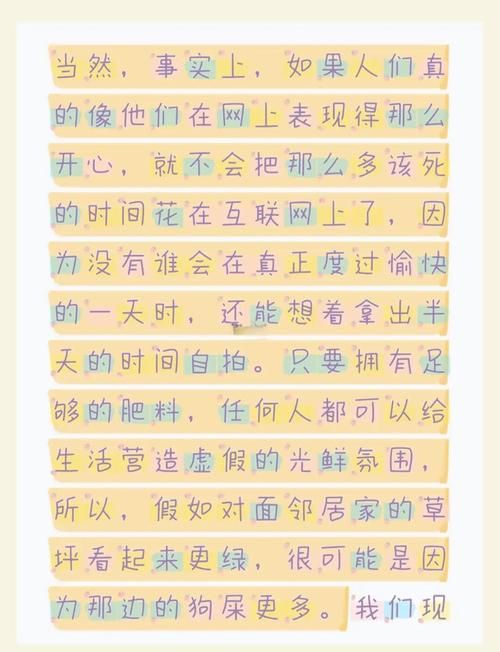 当然，事实上，如果人们真
的像他们在网上表现得那么
开心，就不会把那么多该死
的时间花在互联网上了，因
为没有谁会在真正度过愉快
的一天时，还能想着拿出半
天的时间自拍。只要拥有足
够的肥料，任何人都可以给
生活营造虚假的光鲜氛围，
所以，假如对面邻居家的草
坪看起来更绿，很可能是因
为那边的狗屎更多。我们现